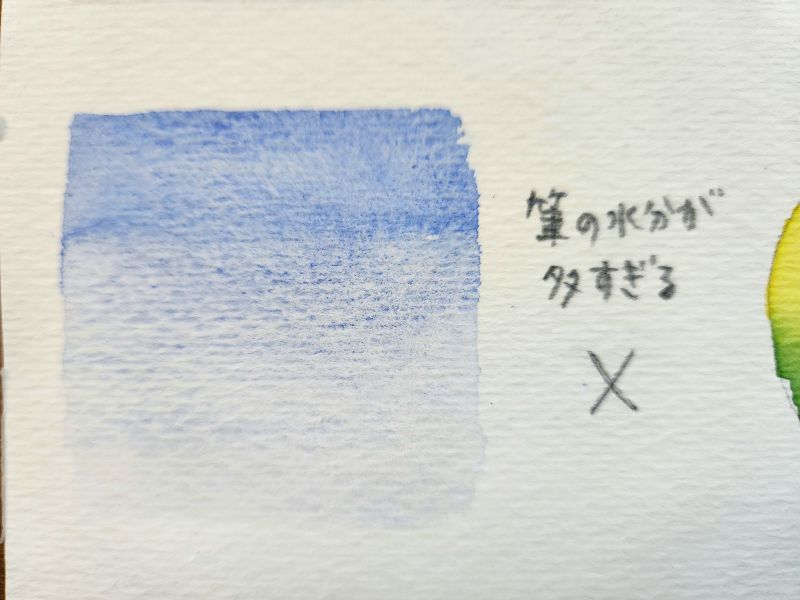 筆の水分が
多すぎる
×